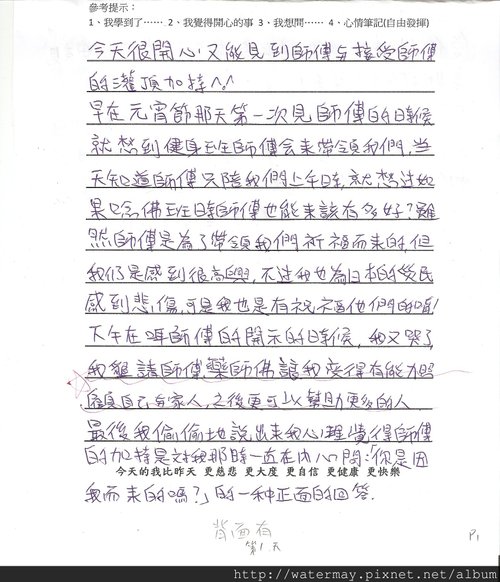 參考提示：
1、我學到了…… 2、我覺得開心的事 3、我想問…… 4、心情筆記(自由發揮)
今天很開心又能見到師傅与接受師傅
的灌頂加持^^
早在元宵節那天第一次見師傅的時候
就想到健身班師傅会來帶領我們,當
天知道師傅只陪我們上午時,就想过如
果唸佛班時師傅也能來該有多好?雖
然師傅是為了帶領我們祈福而來的,但
我们是感到很高興,不过我也為日本的災民
感到悲傷,可是我也是有祝福他們的唷!
下午在聽師傅的開示的時候,我又哭了
我墾請師傅,藥師佛讓我变得有能力照
顧自己与家人,之後更可以幫助更多的人
最後我偷偷地説出來我心裡覺得師傅
的加持是对我那時一直在內心問:「你是因
今天的我比昨天 更慈悲 更大度 更自信 更健康 更快樂
我而來的嗎?」的一种正面的回答.
背面有
第1天
P1
http://watermay.pixnet.net/album